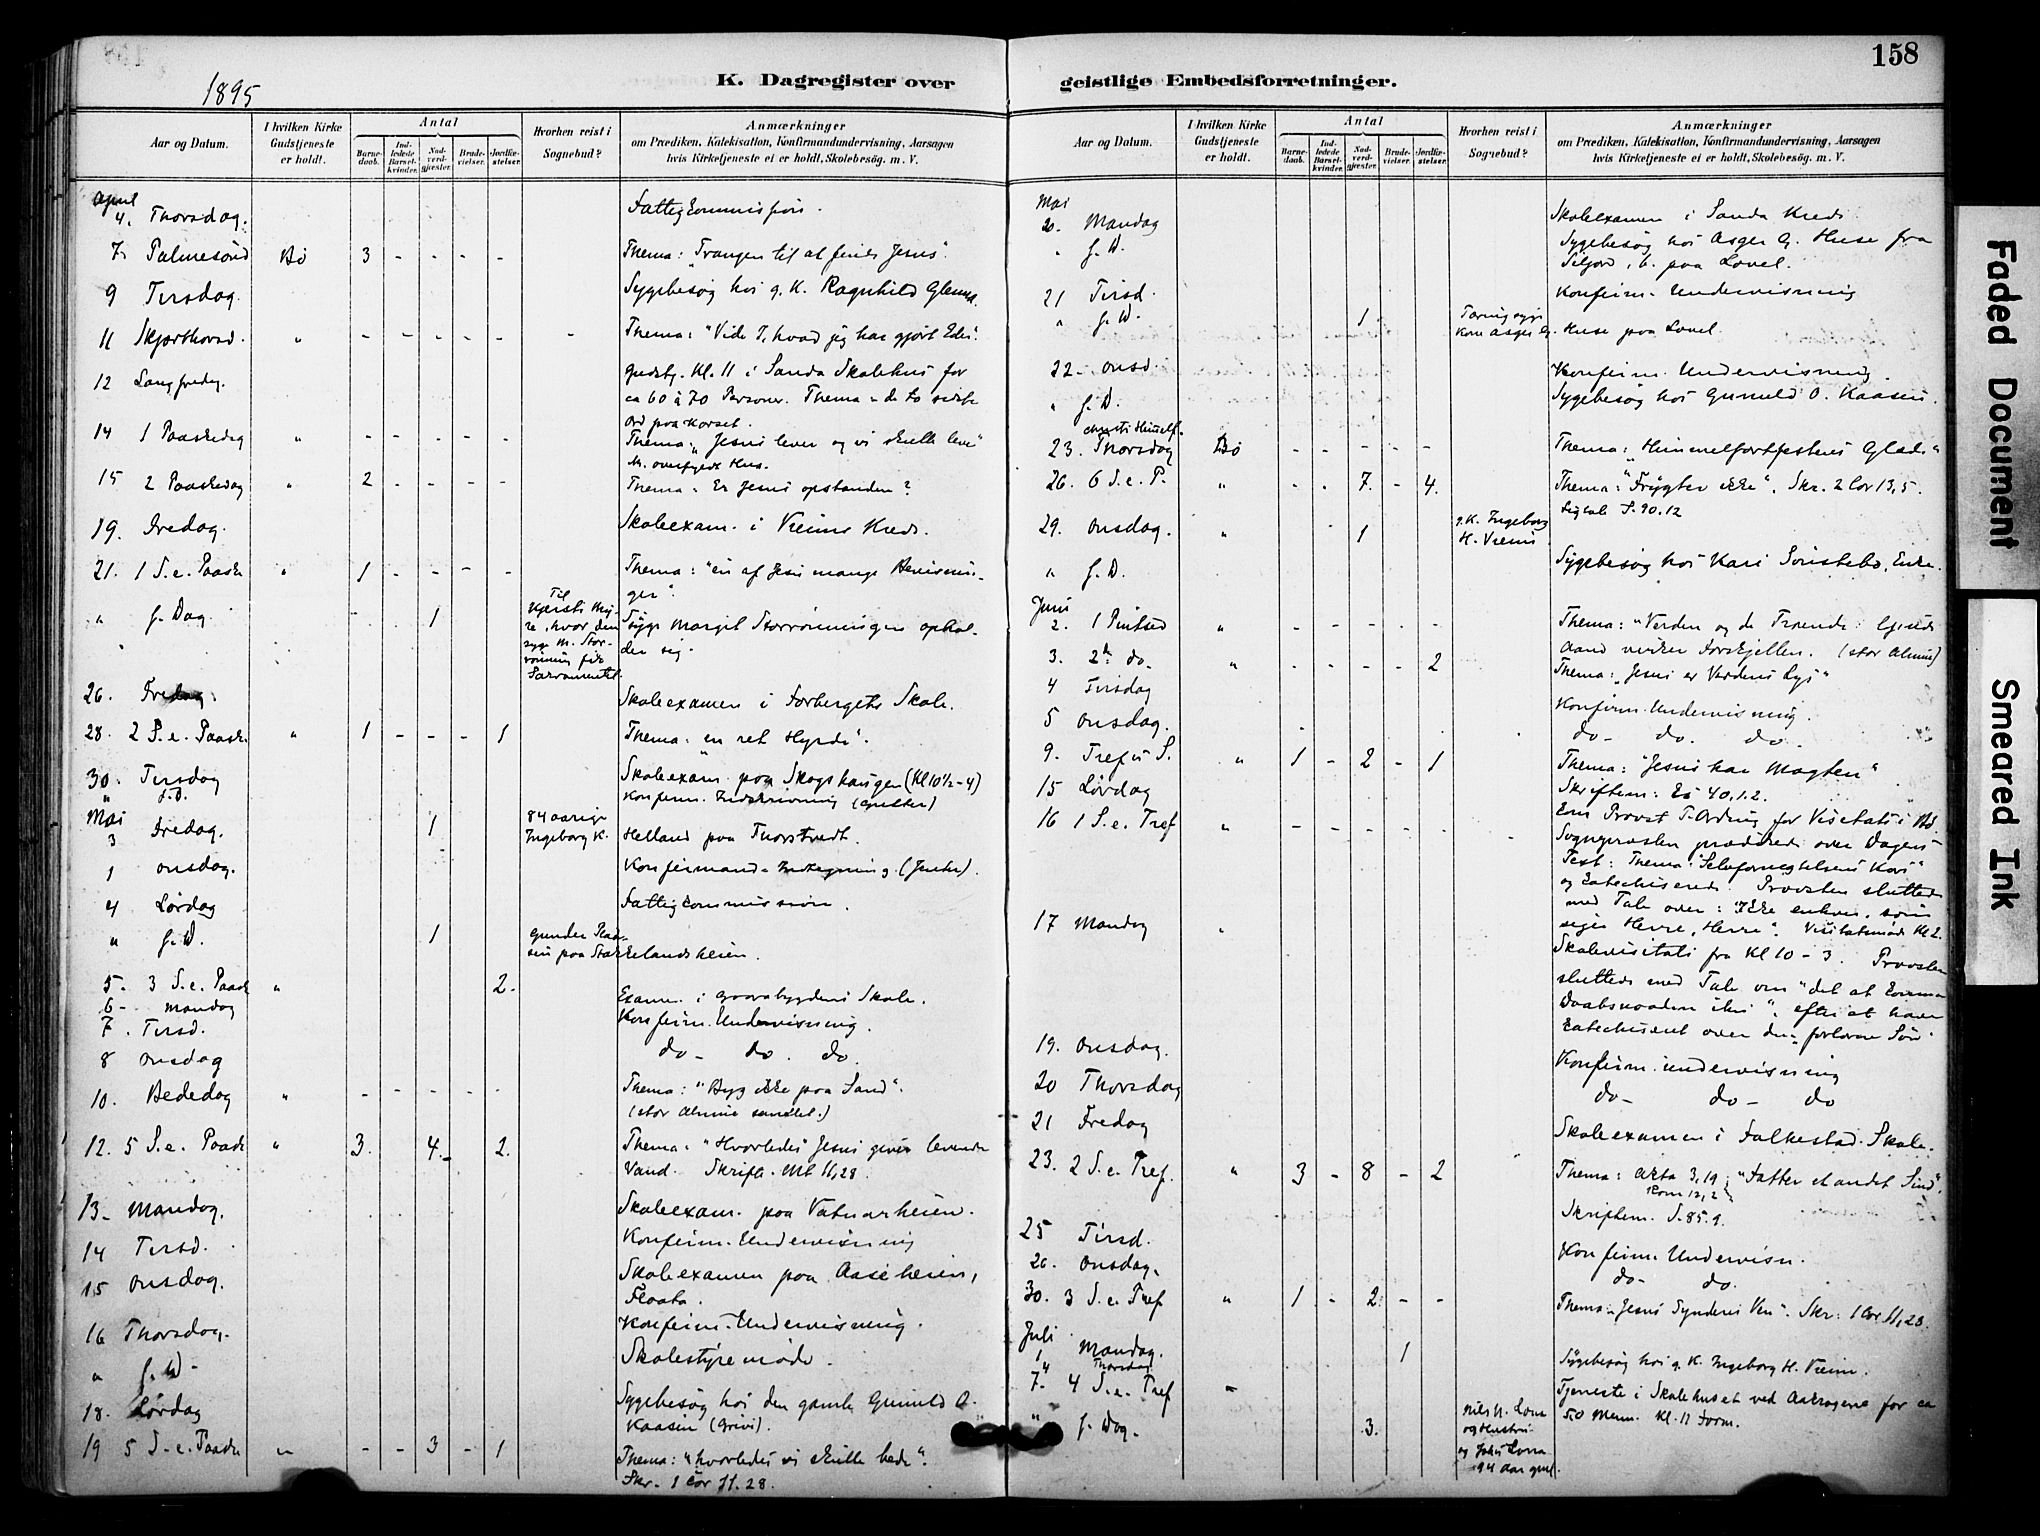 158
1895
K. Dagregister over geistlige Embedsforretninger.
Aar og Datum.
I hvilken Kirke Gudstjeneste er holdt.
Antal
Barnedaab.
Indledede Barselkvinder.
Nadverdgjæster.
Brudevielser.
Jordfæstelser.
Hvorhen reist i Sognebud?
Anmærkninger
om Prædiken, Katekisation, Konfirmandundervisning, Aarsagen
hvis Kirketjeneste ei er holdt, Skolebesög. m. V.
April
4. Thorsdag. Fattigcommission.
7. Palmesönd Bö 3 - - - - Thema: "Trangen til at finde Jesus".
9 Tirsdag. Sygebesög hos g. K. Ragnhild
11 Skjærthorsd. " - - - - - - Thema: "Vide I, hvad jeg har gjort Eder".
12 Langfredag. Gudstj. Kl. 11 i Sanda Skolehus for
ca 60 à 70 Personer. Thema: de to sidste
Ord paa Korset.
14 1 Paaskedag " - - - - - Thema: "Jesus lever og vi skulle leve"
M. overfyldt Hus.
15 2 Paaskedag " 2 - - - - Thema: Er Jesus opstanden?
19. Fredag. Skoleexam. i Kreds.
21. 1 S. e. Paaske " 1 - - - - Thema: "en af Jesu mange
ger".
" s. Dag. 1 Til
hvor den
syge M. Stor-
fik
Sacramentet. syge Margit ophol-
der sig.
26. Fredag. Skoleexamen i Skole.
28. 2 S. e. Paaske " 1 - - - 1 Thema: en ret Hyrde".
30. Tirsdag Skoleexam. paa Skogshaugen (Kl 10½-4)
" s. D. Konfirm. Indskrivning (Gutter)
Mai
3 Fredag. 1 84 aarige
Ingeborg K. Helland paa
1 Onsdag. Konfirmand-Indtegning. (Jenter).
4 Lördag Fattigcommission.
" s. D. 1 Gunder
5. 3 S. e. Paaske " 2.
6. Mandag Examen i Skole.
7. Tirsd. Konfirm. Undervisning.
8 Onsdag do- do. do.
10. Bededag " - - - - - Thema: "Byg ikke paa Sand".
(stor Almue samlet.)
12. 5 S. e. Paaske " 3. 4. 2. Thema: "Hvorledes Jesus giver levende
Vand. Skrift. Mt 11,28.
13. Mandag. Skoleexam. paa
14 Tirsd. Konfirm. Undervisning
15 Onsdag. Skoleexamen paa Aaseheien,
16 Thorsdag. Konfirm. Undervisning.
" s. D. Skolestyremöde.
18. Lördag Sygebesög hos den gamle Gunuld O.
Kaasin (Grivi).
19 5 S. e. Paaske " - - 3 - 1 Thema: "hvorledes vi skulle bede".
Skr. 1 Cor 11.28.
Aar og Datum.
I hvilken Kirke Gudstjeneste er holdt.
Antal
Barnedaab.
Indledede Barselkvinder.
Nadverdgjæster.
Brudevielser.
Jordfæstelser.
Hvorhen reist i Sognebud?
Anmærkninger
om Prædiken, Katekisation, Konfirmandundervisning, Aarsagen
hvis Kirketjeneste ei er holdt, Skolebesög. m. V.
Mai
20. Mandag Skoleexamen i Sanda Kreds
" s. D. Sygebesög hos Asger G. Huse fra
paa Lovel.
21 Tirsd. Konfirm. Undervisning
" s. D. 1 Asger G. Huse paa Lovel
22. Onsd. Konfirm. Undervisning
" s. D. Sygebesög hos Gunuld O. Kaasin.
Christi Himmelf.
23. Thorsdag Bö - - - - - Thema: "Himmelfartsfestens Glæde"
26. 6 S. e. P. " - - 7. - 4. Thema: "Frygter ikke". Skr. 2 Cor 13,5.
S. 90.12
29. Onsdag. " 1 g. K. Ingeborg
H. Vreim
" s. D. Sygebesög hos Kari Sönstebö, Enke.
Juni
2. 1 Pintsed " - - - - - Thema: "Verden og de Troende: Guds
Aand virker Forskjellen. (stor Almue)
3. 2den do. " - - - - 2 Thema: "Jesus er Verdens Lys"
4 Tirsdag Konfirm. Undervisning.
5 Onsdag. do- do. do.
9. Tref S. " 1 - 2 - 1 Thema: "Jesus har Magten"
15 Lördag Skriftem: Es 40.1.2.
16 1 S. e. Tref " - - - - - Provst for Visitats i Bö.
Sognepresten prædikede over Dagens
Text: Thema: Selvfornegtelsens Kors"
og catechiserede. Provsten sluttede
med Tale over: "Ikke enhver, som
siger Herre, Herre". Visitatsmöde Kl 2.
17 Mandag " Skolevisitats fra Kl 10-3. Provsten
sluttede med Tale om "det at komme
Daabsnaaden ihu", efter at have
catechiseret over den "forlorne Sön"
19. Onsdag. Konfirm. undervisning
20 Thorsdag do- do- do
21 Fredag Skoleexamen i Folkestad Skole.
23. 2 S. e. Tref. " 3 - 8 - 2 Thema: Acta 3,19; "Fatter et andet Sind".
Rom 12,2
Skriftem. S. 85.9.
25 Tirsd. Konfirm. Undervisn.
26. Onsdag. do- do.
30. 3 S. e. Tref " 1 - 2. - - Thema: Jesus Synderes Ven". Skr: 1 Cor 11,28.
Juli
1 Mandag. 1
4 Thorsdag Sygebesög hos g. K. Ingeborg H. Vreim.
7. 4 S. e. Tref - Tjeneste i Skolehuset ved for ca
50 Menn. Kl. 11 Form.
" s. Dag. 3. Nils N.
og Hustru
og
94 Aar gml.
Faded Document
Smeared Ink